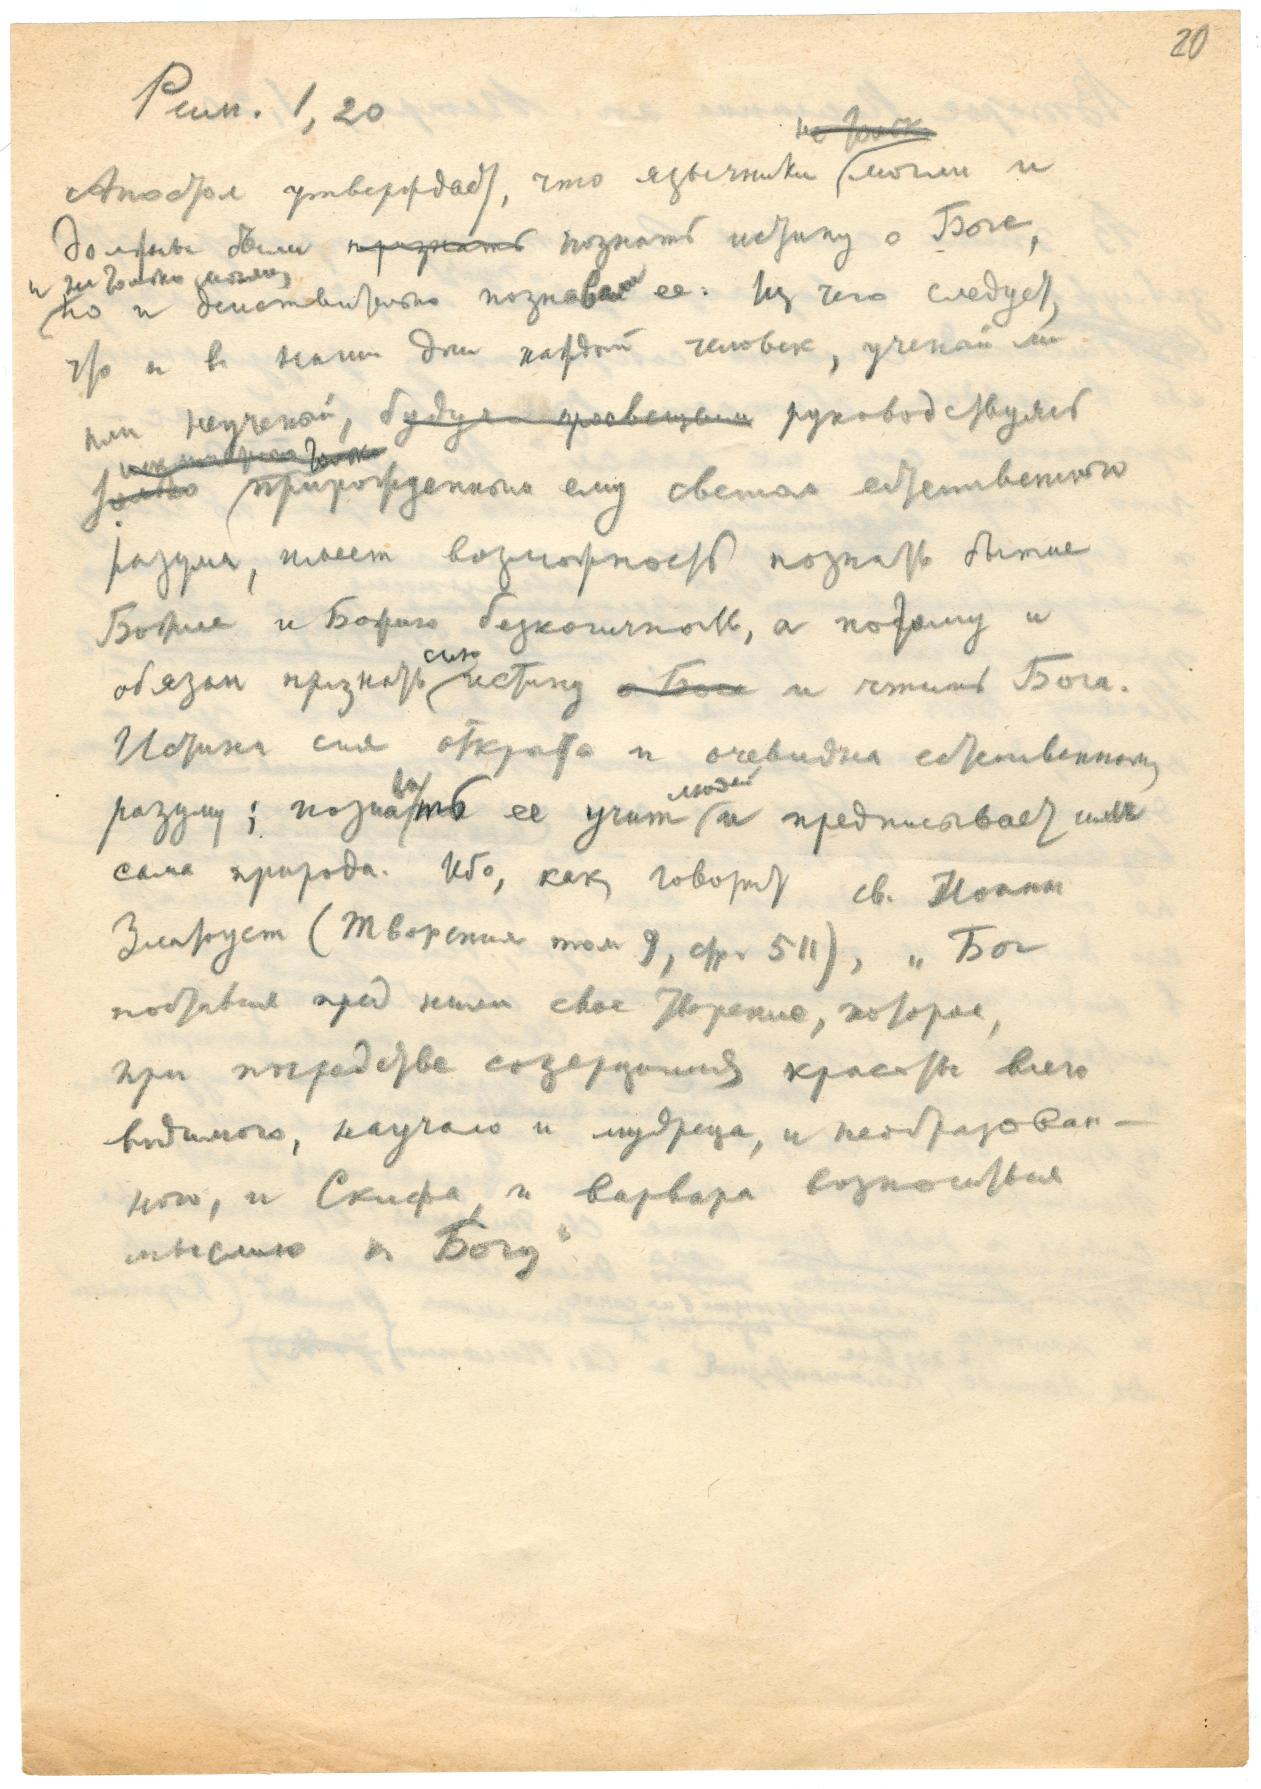 20
Рим. 1, 20
не только
Апостол утверждает, что язычники могли и
должны были признать познать истину о Боге,
и не только могли,
но и действительно познавали ее: Из чего следует,
что и в наши дни каждый человек, ученый ли
или неученый, будучи просвещен руководствуясь
только
только прирожденным ему светом естественного
разума, имеет возможность познать бытие
Божие и Божию безконечность, а потому и
сию
обязан признать истину о Боге и чтить Бога.
Истина сия открыта и очевидна естественному
людей
разуму; познавать ее учит и предписывает им
сама природа. Ибо, как говорит св. Иоанн
Златоуст (Творения том 9, стр. 511), „Бог
поставил пред ними свое творение, которое,
при посредстве созерцания красоты всего
видимого, научало и мудреца, и необразован-
ного, и Скифа, и варвара возноситься
мыслию к Богу“